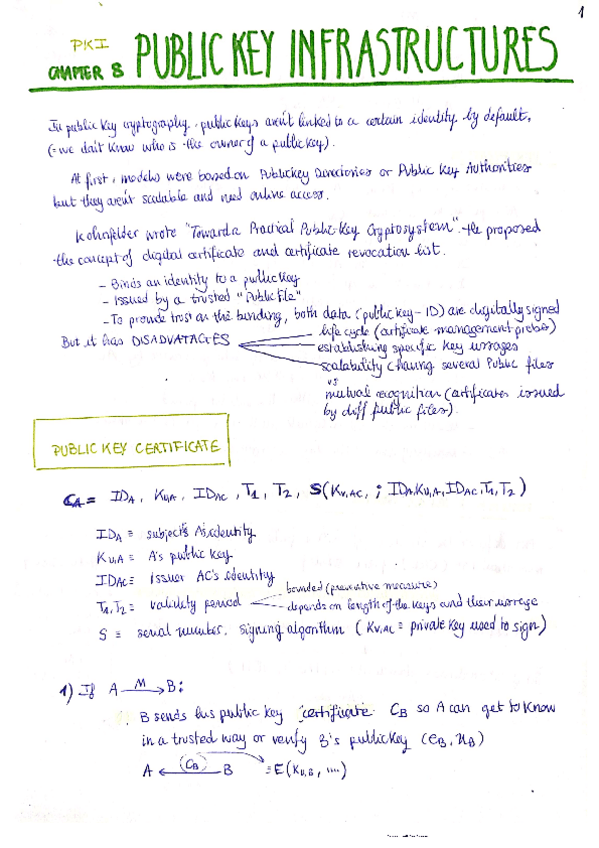 1
PKI
CHAPTER 8 PUBLIC KEY INFRASTRUCTURES
In public key cryptography, public keys aren't linked to a certain identity by default,
(= we don't know who is the owner of a public key).
At first, models were based on Public Key Directories or Public Key Authorities
but they aren't scalable and need online access.
Kohnfelder wrote "Toward a Practical Public-Key Cryptosystem". He proposed
the concept of digital certificate and certificate revocation list.
- Binds an identity to a public key
- Issued by a trusted "Public File"
- To provide trust on the binding, both data (public key - ID) are digitally signed
But it has DISADVATAGES
life cycle (certificate management probs)
establishing specific key ussages
scalability (having several Public files
vs
mutual recognition (certificates issued
by diff public files).
PUBLIC KEY CERTIFICATE
CA = IDA, KU,A, IDAC, T1, T2, S(KV,AC, ; IDA, KU,A, IDAC, T1, T2)
IDA ≡ subject's A's identity
KU,A ≡ A's public key
IDAC ≡ issuer AC's identity
T1, T2 ≡ validity period
- bounded (preventive measure)
- depends on length of the keys and their ussage
S ≡ serial number. signing algorithm (KV,AC ≡ private key used to sign)
1) If A —M→ B:
B sends his public key certificate CB so A can get to know
in a trusted way or verify B's public key (eB, nB)
A ←(CB)— B ≡ E(KU,B, ....)